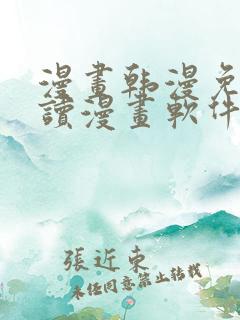 漫畫韩漫免
讀漫畫軟件
張近東
未经同意禁止转载